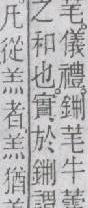 芼。儀禮。鉶芼牛藿
之和也。實於鉶謂
凡從羔者。羔猶